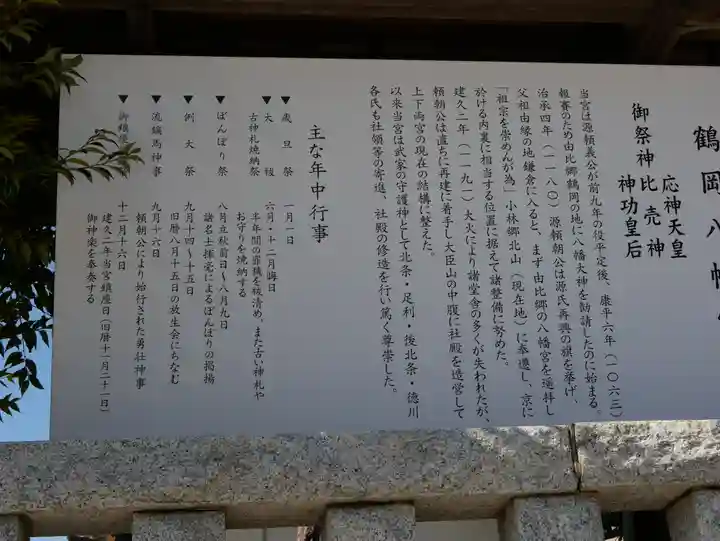 鶴岡八幡
応神天皇
御祭神比売神
神功皇后
当宮は源頼義公が前九年の役平定後、康平六年(一〇六三)
報賽のため由比郷鶴岡の地に八幡大神を勧請したのに始まる。
治承四年(一一八〇)源頼朝公は源氏再興の旗を挙げ、
父祖由縁の地鎌倉に入ると、まず由比郷の八幡宮を遥拝し
「祖宗を崇めんが為」小林郷北山(現在地)に奉遷し、京に
於ける内裏に相当する位置に据えて諸整備に努めた。
建久二年(一一九一)大火により諸堂舎の多くが失われたが、
頼朝公は直ちに再建に着手し大臣山の中腹に社殿を造営して
上下両宮の現在の結構に整えた。
以来当宮は武家の守護神として北条・足利・後北条・徳川
各氏も社領等の寄進、社殿の修造を行い篤く尊崇した。
主な年中行事
▼歳旦祭 一月一日
▼大祓 六月・十二月晦日
古神札焼納祭 半年間の罪穢を祓清め、また古い神札や
お守りを焼納する
▼ぼんぼり祭 八月立秋前日〜八月九日
諸名士揮毫によるぼんぼりの掲揚
▼例大祭 九月十四〜十五日
旧暦八月十五日の放生会にちなむ
▼流鏑馬神事 九月十六日
頼朝公により始行された勇壮神事
▼御鎮座 十二月十六日
建久二年当宮鎮座日(旧暦十一月二十一日)
御神楽を奉奏する